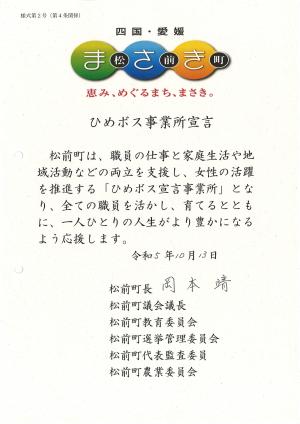 様式第2号(第4条関係)
四国・愛媛
まさき
松前町
恵み、めぐるまち、まさき。
ひめボス事業所宣言
松前町は、職員の仕事と家庭生活や地
域活動などの両立を支援し、女性の活躍
を推進する「ひめボス宣言事業所」とな
り、全ての職員を活かし、育てるととも
に、一人ひとりの人生がより豊かになる
よう応援します。
令和5年10月13日
松前町長 岡本靖
松前町議会議長
松前町教育委員会
松前町選挙管理委員会
松前町代表監査委員
松前町農業委員会